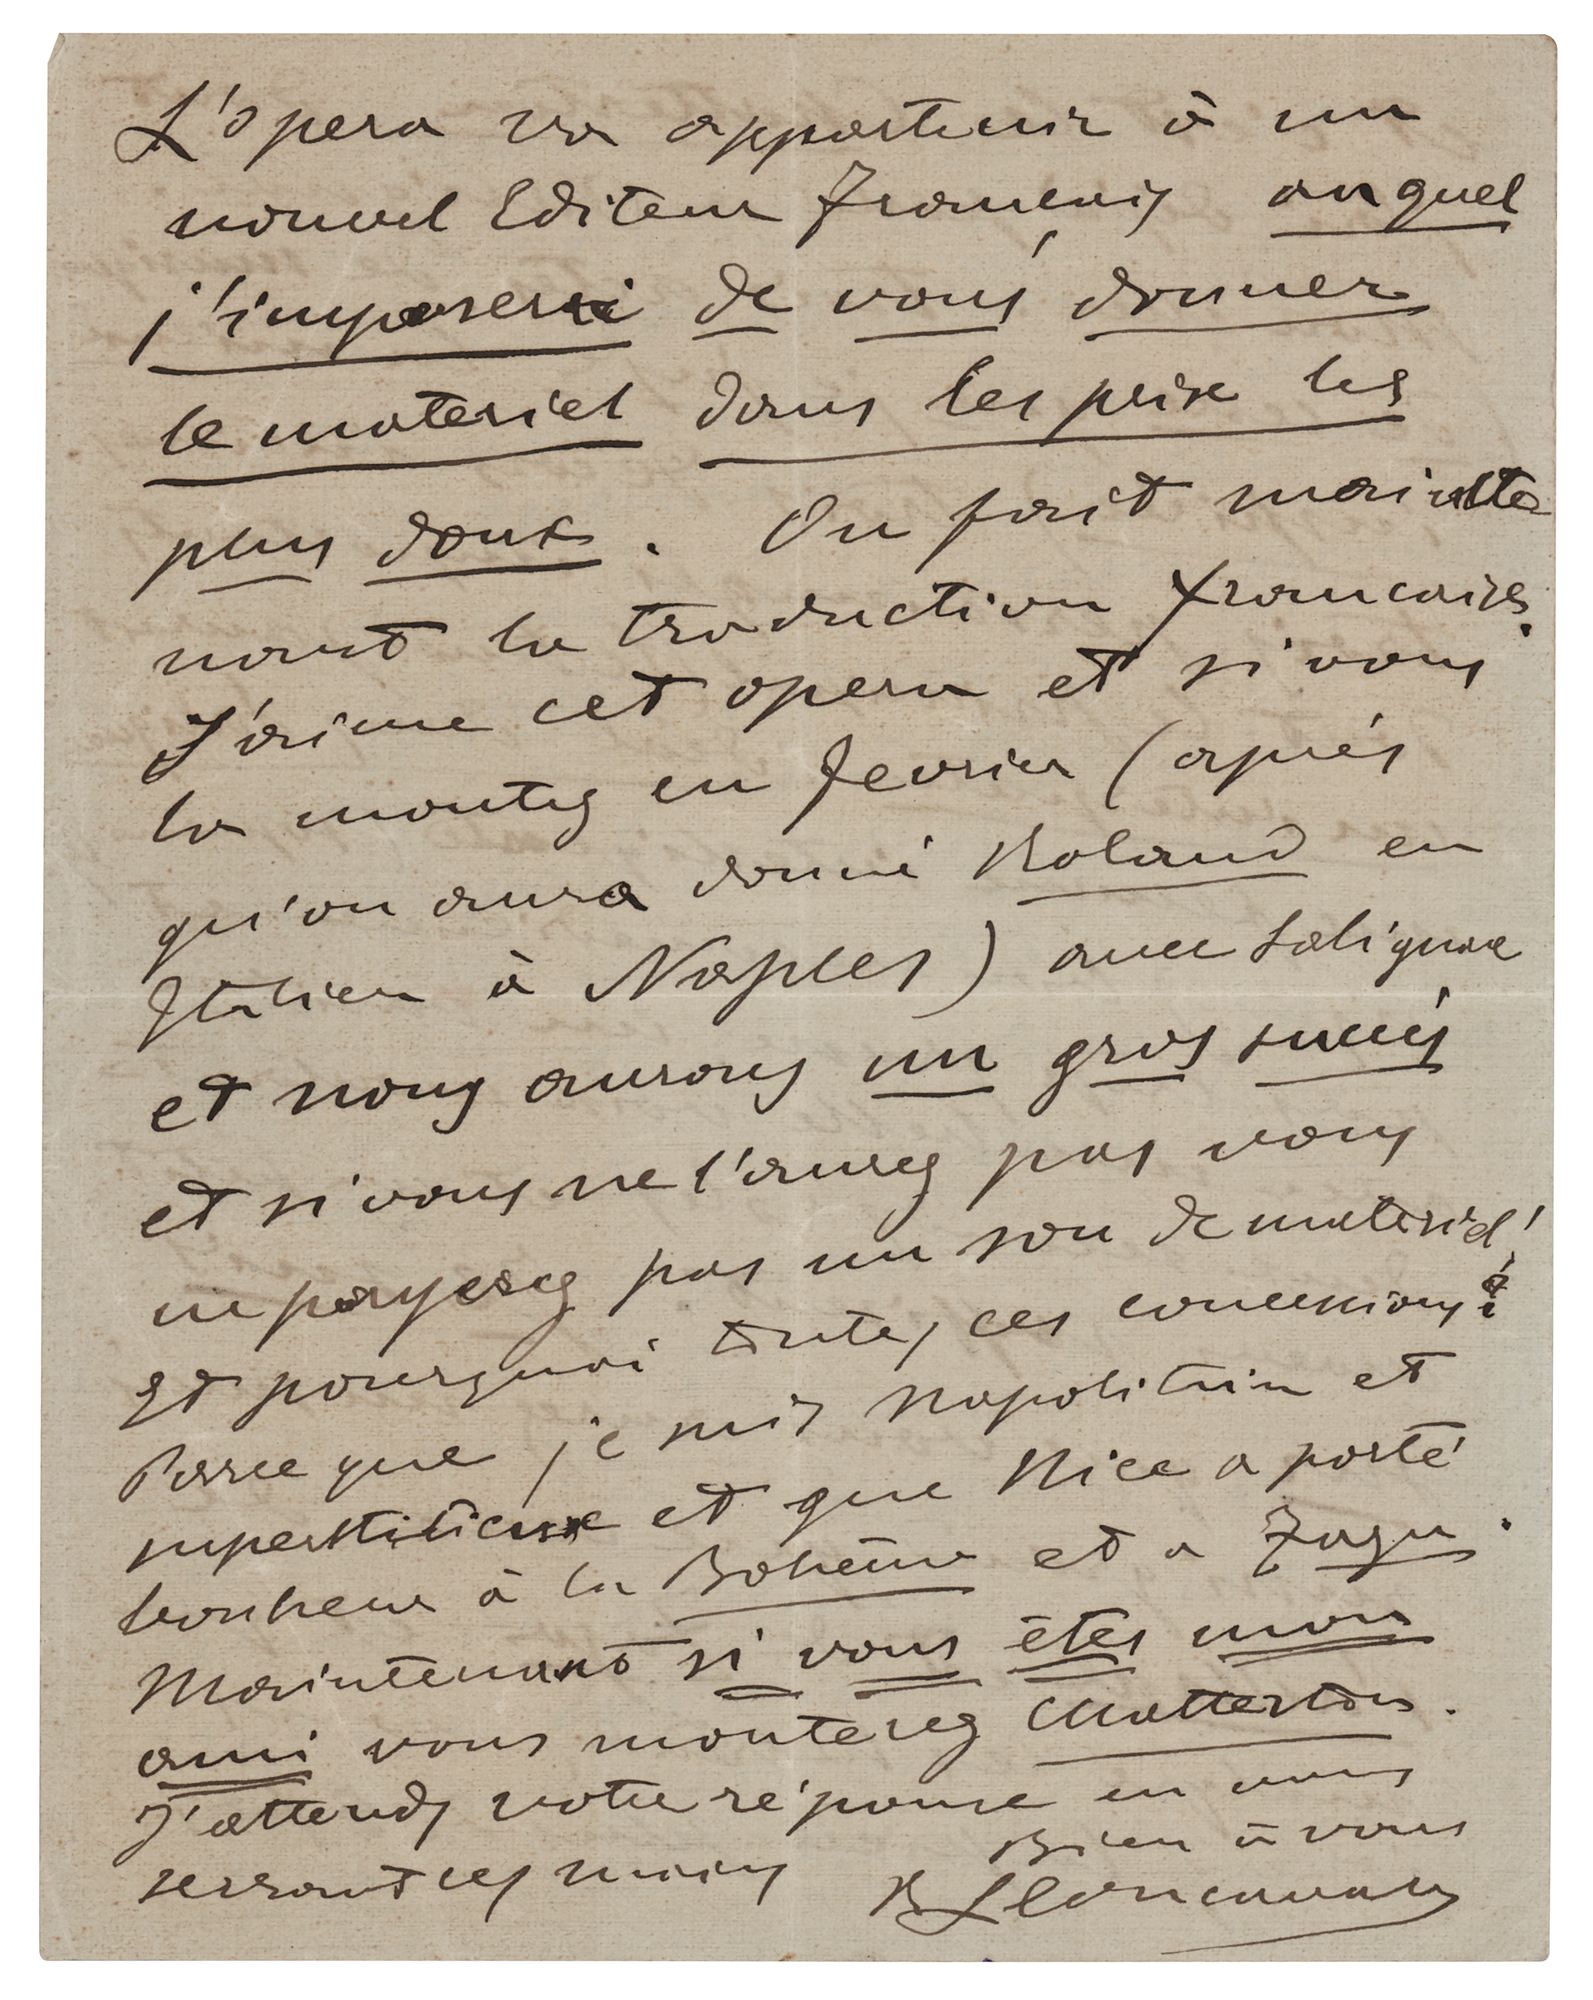 L'opera va appartenir à un
nouvel Editeur Français auquel
j'imposerai de vous donner
le materiel dans les prix les
plus doux. On fait mainte
nant la traduction francaise.
J'aime cet opera et si vous
la montez en fevrier (après
qu'on aura donné Roland en
Italien à Naples) avec Salignac
et nous aurons un gros succés
et si vous ne l'aurez pas vous
ne payerez pas un sou de materiel!
Et pourquoi toutes ces concessions?
Parce que je suis Napolitain et
superstitieux et que Nice a porté
bonheur à la Bohême et a Zaza.
Maintenant si vous êtes mon
ami vous monterez Chatterton.
J'attends votre réponse en vous
serrant les mains Bien à vous
R Leoncavallo